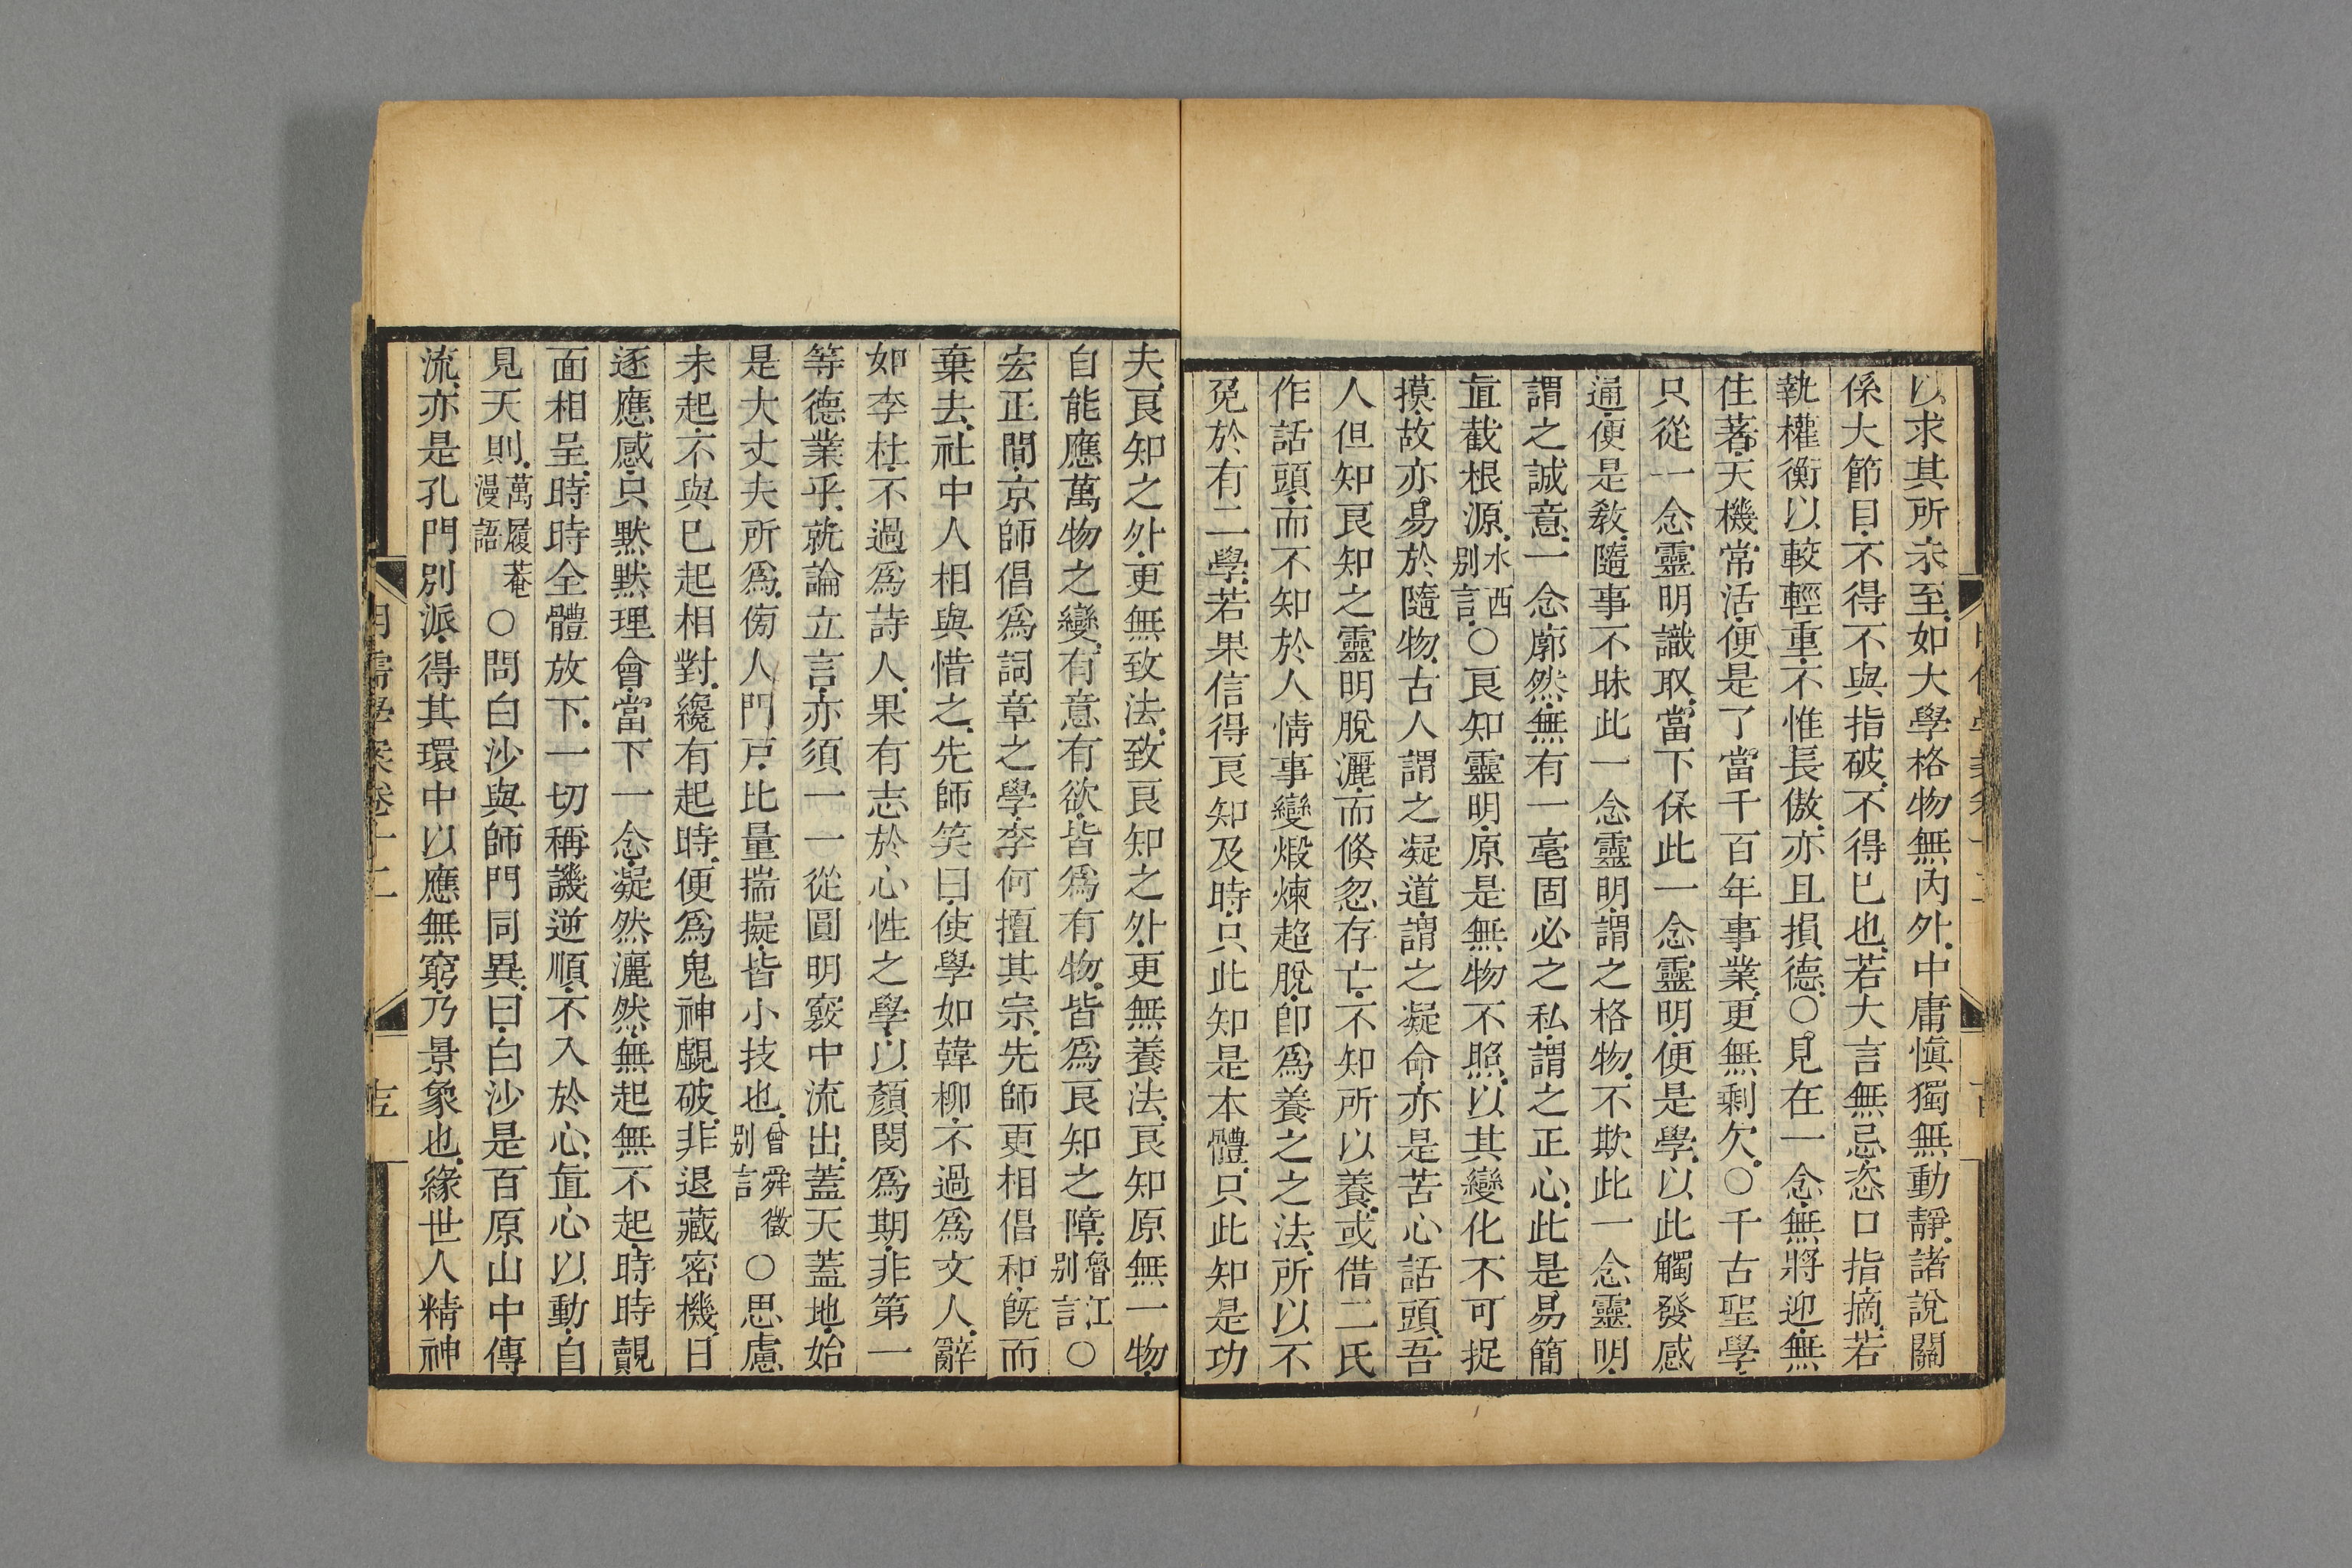 以求其所未至如大學格物無內外中庸愼獨無動靜諸說關
係大節目不得不與指破不得已也若大言無忌恣口指摘若
執權衡以較輕重不惟長傲亦且損德○見在一念無將迎無
住著天機常活便是了當千百年事業更無剩欠○千古聖學
只從一念靈明識取當下保此一念靈明便是學以此觸發感
通便是敎隨事不昧此一念靈明謂之格物不欺此一念靈明
謂之誠意一念廓然無有一毫固必之私謂之正心此是易簡
直截根源水西别言○良知靈明原是無物不照以其變化不可捉
摸故亦易於隨物古人謂之凝道謂之凝命亦是苦心話頭吾
人但知良知之靈明脫灑而倐忽存亡不知所以養或借二氏
作話頭而不知於人情事變煅煉超脫卽爲養之之法所以不
免於有二學若果信得良知及時只此知是本體只此知是功
夫良知之外更無致法致良知之外更無養法良知原無一物
自能應萬物之變有意有欲皆爲有物皆爲良知之障魯江别言○
宏正間京師倡爲詞章之學李何擅其宗先師更相倡和旣而
棄去社中人相與惜之先師笑曰使學如韓柳不過爲文人辭
如李杜不過爲詩人果有志於心性之學以顏閔爲期非第一
等德業乎就論立言亦須一一從圓明竅中流出蓋天蓋地始
是大丈夫所爲傍人門戸比量揣擬皆小技也曾舜徵别言○思慮
未起不與已起相對纔有起時便爲鬼神覷破非退藏密機日
逐應感只默默理會當下一念凝然灑然無起無不起時時覿
面相呈時時全體放下一切稱譏逆順不入於心直心以動自
見天則萬履菴漫語○問白沙與師門同異曰白沙是百原山中傳
流亦是孔門別派得其環中以應無窮乃景象也緣世人精神
明儒學案卷十二